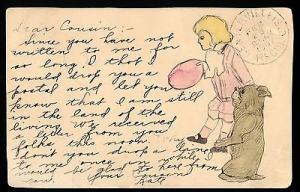 Dear Cousin:
Since you have not
written to me for
so long I that I
would drop you a
postal and let you
know that I am still
in the land of the
living. We received
a letter from you
folks this noon.
Why don't you drop a line
to me once in awhile
would be glad to hear from
your cousin